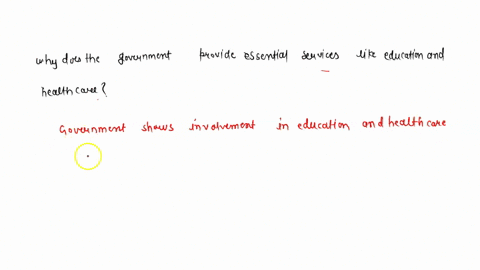 why does the government provide essential services like education and
healthcare?
Government shows involvement in education and healthcare